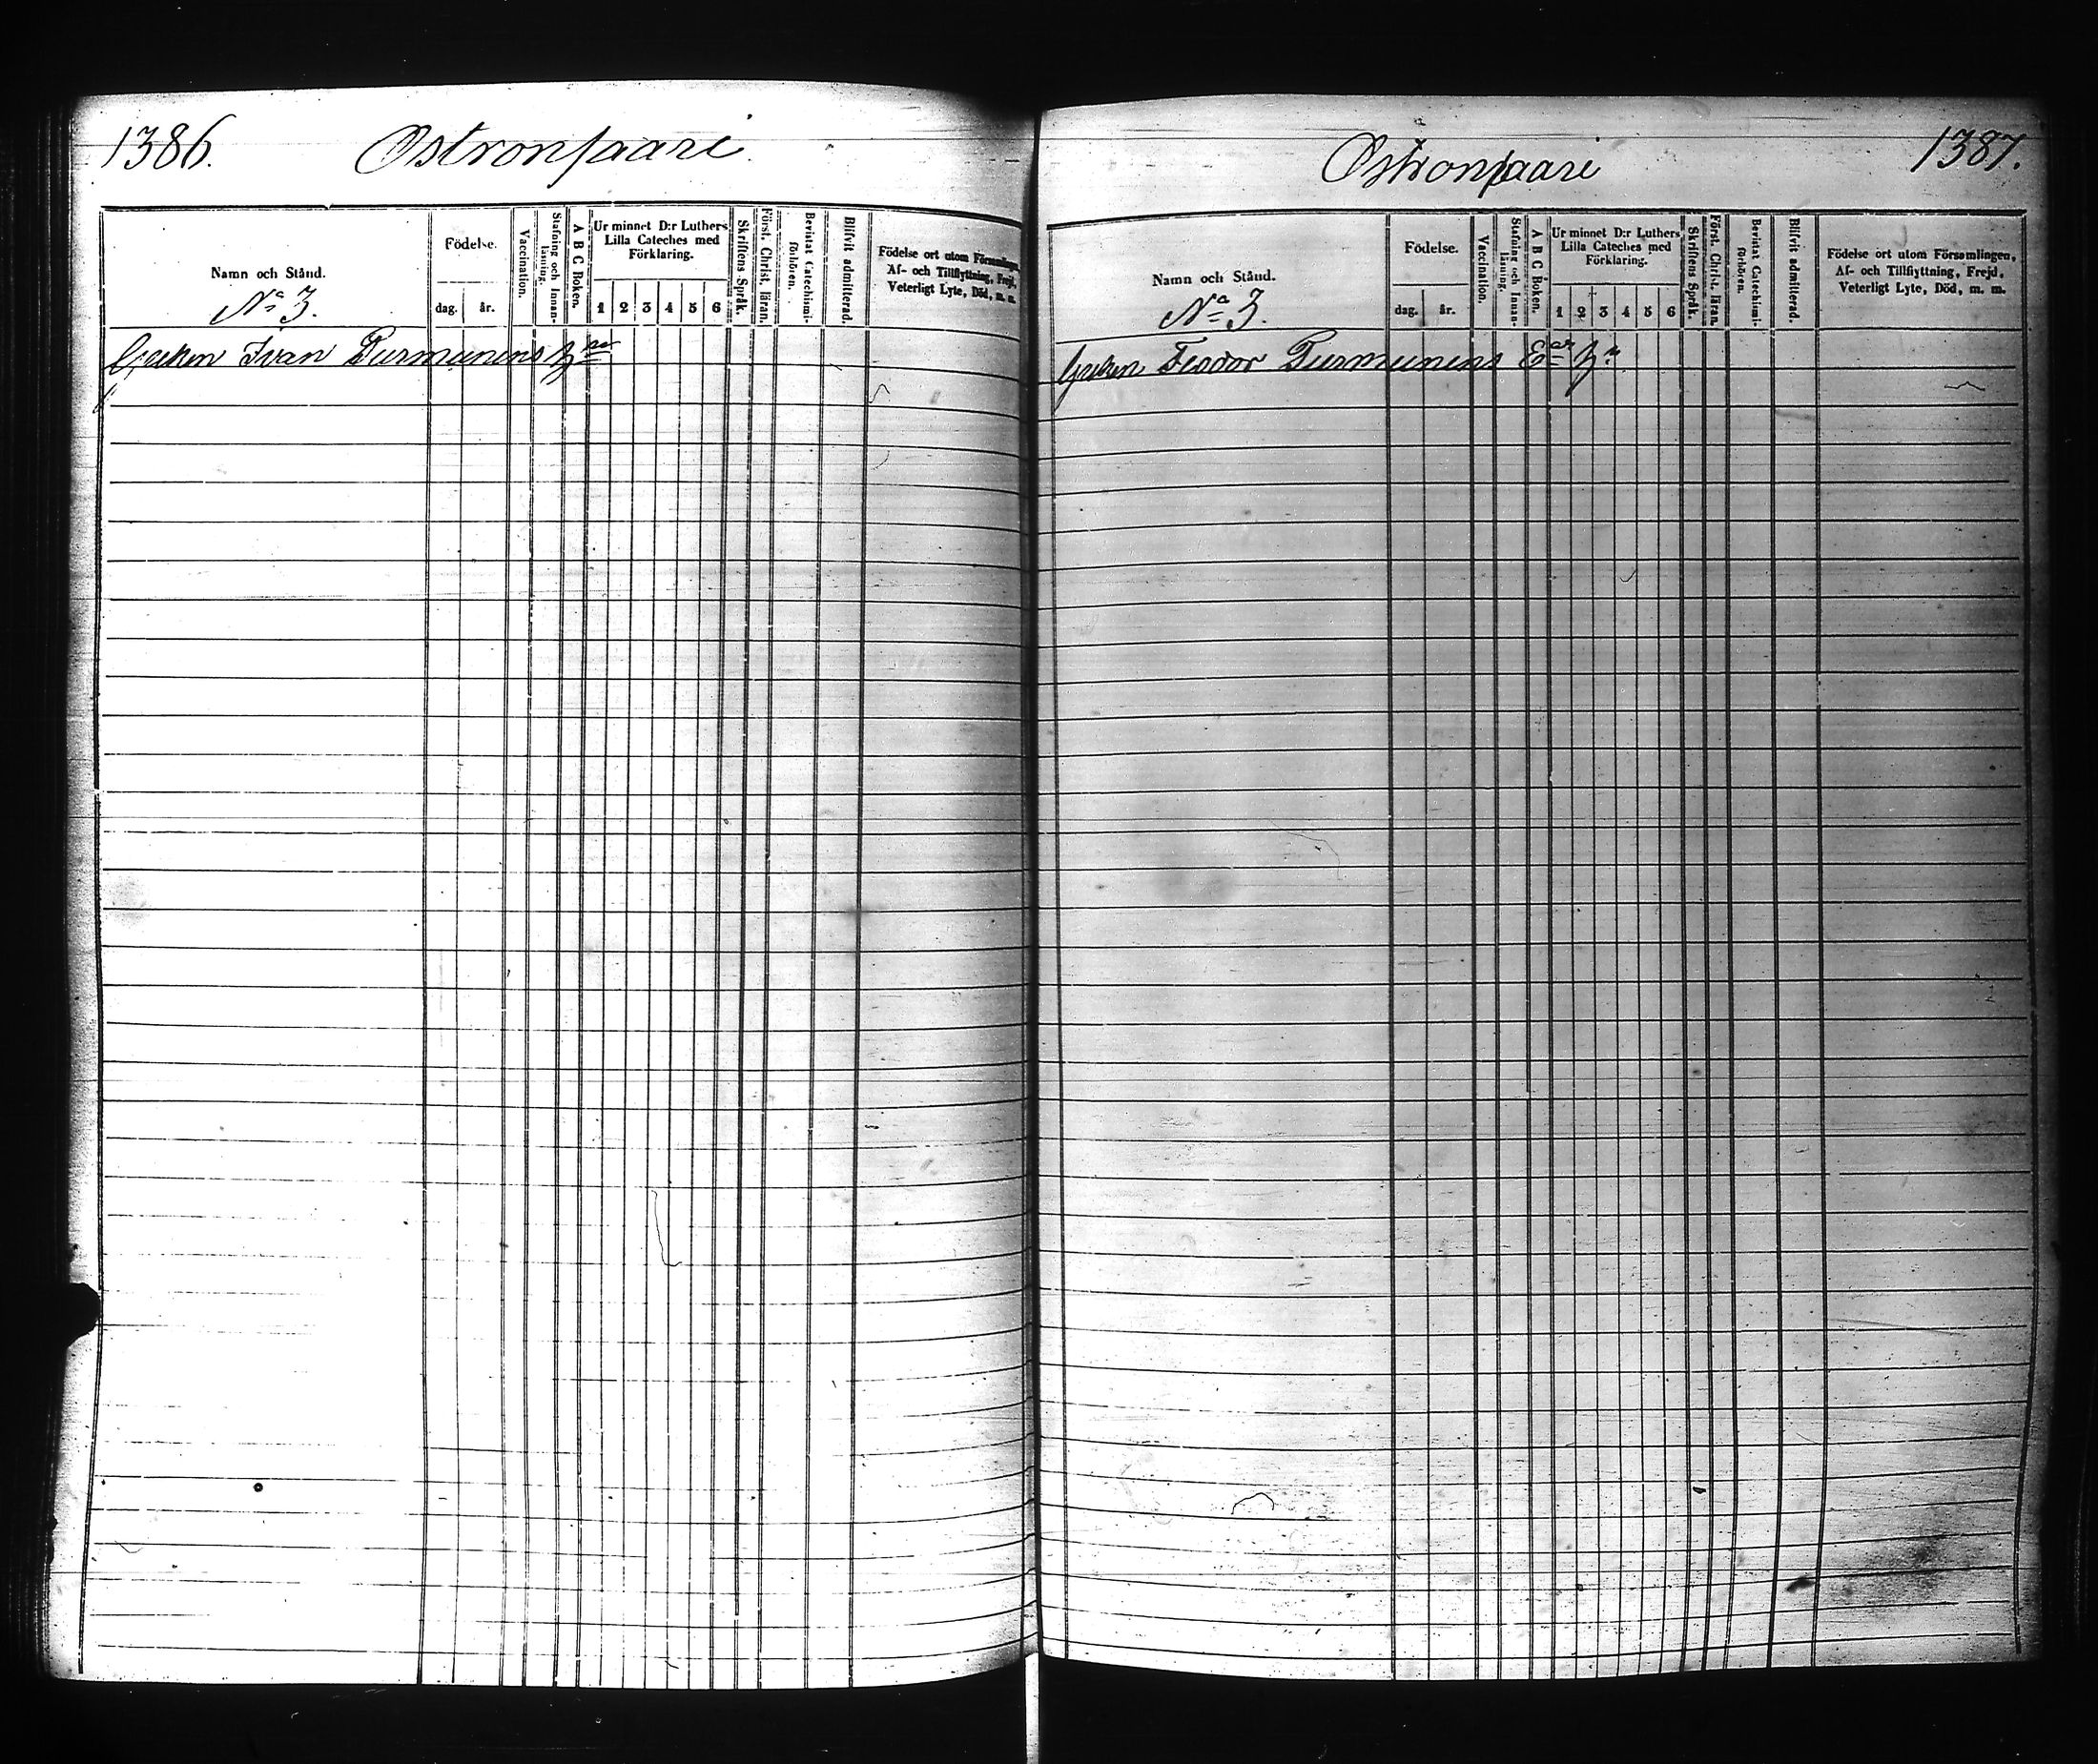 1386.
Ostronsaari
Namn och Stånd.
Nº 3.
Födelse.
dag. år.
Vaccination.
Stafning och Innan-
läsning.
A B C Boken.
Ur minnet D:r Luthers
Lilla Cateches med
Förklaring.
1 2 3 4 5 6
Skriftens Språk.
Först. Christ. läran.
Bevistat Catechismi-
förhören.
Blifvit admitterad.
Födelse ort utom Församlingen,
Af- och Tillflyttning, Frejd,
Veterligt Lyte, Död, m. m.
Greken Ivan Turmunens
1387.
Ostronsaari
Namn och Stånd.
Nº 3.
Födelse.
dag. år.
Vaccination.
Stafning och Innan-
läsning.
A B C Boken.
Ur minnet D:r Luthers
Lilla Cateches med
Förklaring.
1 2 3 4 5 6
Skriftens Språk.
Först. Christ. läran.
Bevistat Catechismi-
förhören.
Blifvit admitterad.
Födelse ort utom Församlingen,
Af- och Tillflyttning, Frejd,
Veterligt Lyte, Död, m. m.
Greken Feodor Turmunens